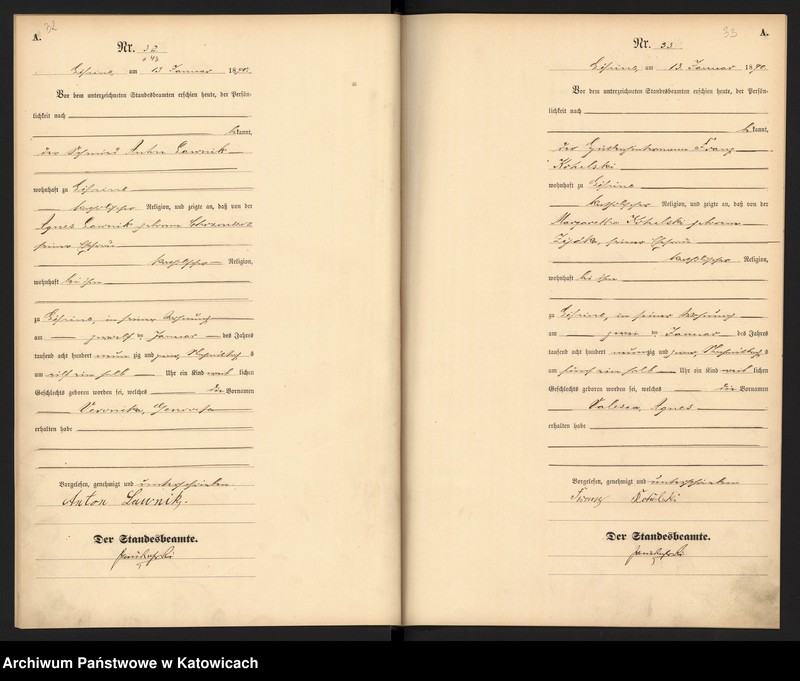 32
A.
Nr. 32
am 13 Januar 1890.
Vor dem unterzeichneten Standesbeamten erschien heute, der Persön-
lichkeit nach
bekannt,
der Schmied Anton Lawnik
wohnhaft zu
katholischer Religion, und zeigte an, daß von der
Agnes Lawnik geborene
seiner Ehefrau
katholischer Religion,
wohnhaft bei ihm
zu in seiner Wohnung
am Januar des Jahres
tausend acht hundert neunzig und Nachmittags
um ein halb Uhr ein Kind weiblichen
Geschlechts geboren worden sei, welches die Vornamen
Veronika,
erhalten habe
Vorgelesen, genehmigt und unterschrieben
Anton Lawnik.
Der Standesbeamte.
33
A.
Nr. 33
am 13. Januar 1890.
Vor dem unterzeichneten Standesbeamten erschien heute, der Persön-
lichkeit nach
bekannt,
der Franz
wohnhaft zu
katholischer Religion, und zeigte an, daß von der
Margaretha geborene
seiner Ehefrau
katholischer Religion,
wohnhaft bei ihm
zu in seiner Wohnung
am zwei Januar des Jahres
tausend acht hundert neunzig und Nachmittags
um fünf ein halb Uhr ein Kind weiblichen
Geschlechts geboren worden sei, welches die Vornamen
Valesca, Agnes
erhalten habe
Vorgelesen, genehmigt und unterschrieben
Der Standesbeamte.
Archiwum Państwowe w Katowicach